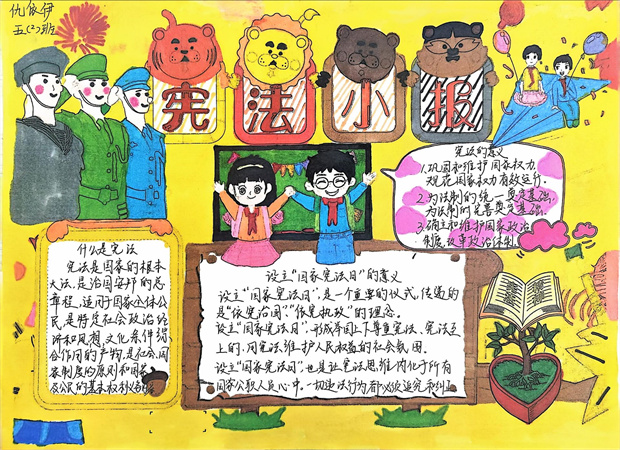 仇依伊
五(2)班
宪法小报
宪法的意义
1.巩固和维护国家权力
规范国家权力有效运行.
2.为法制的统一奠定基础,
为法制的完善奠定基础.
3.确立和维护国家政治
制度,改革政治体制
什么是宪法
宪法是国家的根本
大法,是治国安邦的总
章程,适用于国家全体公
民,是特定社会政治经
济和思想文化条件综
合作用的产物,是社会国
家制度的原则和国家
及公民的基本权利义务
设立“国家宪法日”的意义
设立“国家宪法日”,是一个重要的仪式,传递的
是“依宪治国”“依宪执政”的理念.
设立“国家宪法日”,形成举国上下尊重宪法、宪法至
上的,用宪法维护人民权益的社会氛围.
设立“国家宪法日”也是让宪法思维内化于所有
国家公职人员心中.一切违法行为都必须追究和纠正